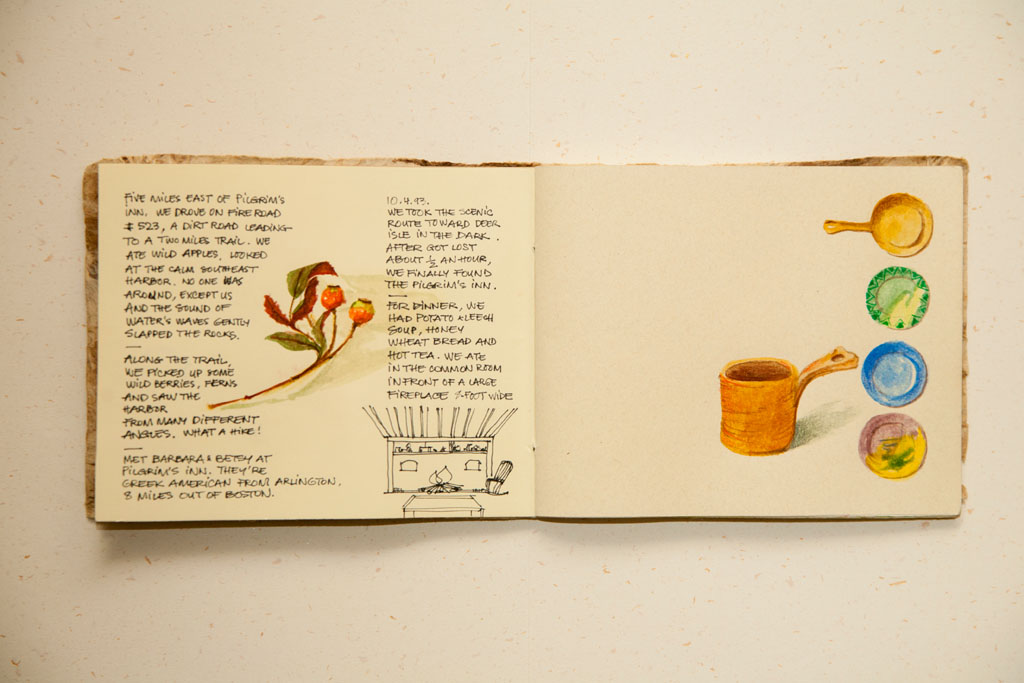 FIVE MILES EAST OF PILGRIM'S
INN. WE DROVE ON FIRE ROAD
# 523, A DIRT ROAD LEADING
TO A TWO MILES TRAIL. WE
ATE WILD APPLES, LOOKED
AT THE CALM SOUTHEAST
HARBOR. NO ONE WAS
AROUND, EXCEPT US
AND THE SOUND OF
WATER'S WAVES GENTLY
SLAPPED THE ROCKS.
—
ALONG THE TRAIL,
WE PICKED UP SOME
WILD BERRIES, FERNS
AND SAW THE
HARBOR
FROM MANY DIFFERENT
ANGLES. WHAT A HIKE!
—
MET BARBARA & BETSY AT
PILGRIM'S INN. THEY'RE
GREEK AMERICAN FROM ARLINGTON,
8 MILES OUT OF BOSTON.
10.4.93.
WE TOOK THE SCENIC
ROUTE TOWARD DEER
ISLE IN THE DARK.
AFTER GOT LOST
ABOUT ½ AN HOUR,
WE FINALLY FOUND
THE PILGRIM'S INN.
—
FOR DINNER, WE
HAD POTATO & LEECH
SOUP, HONEY
WHEAT BREAD AND
HOT TEA. WE ATE
IN THE COMMON ROOM
IN FRONT OF A LARGE
FIREPLACE FOOT WIDE